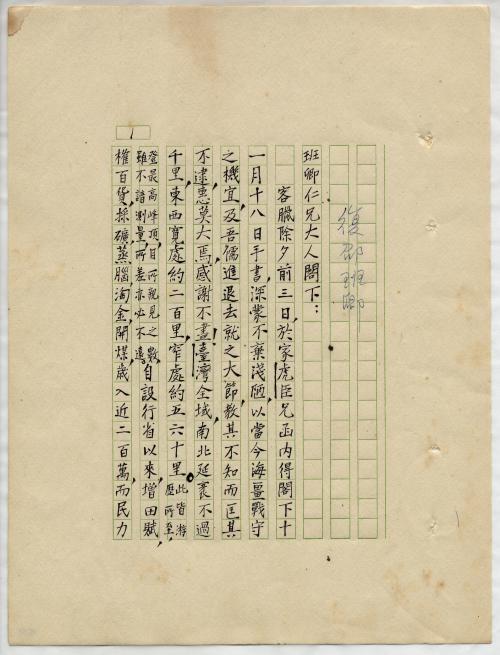 復邵班卿
班卿仁兄大人閣下：
客臘除夕前三日，於家虎臣兄函內得閣下十
一月十八日手書，深蒙不棄淺陋，以當今海畺戰守
之機宜，及吾儕進退去就之大節，教其不知而匡其
不逮，惠莫大焉，感謝不盡！臺灣全域，南北延袤不過
千里，東西寬處約二百里，窄處約五六十里，此皆游
歷所至，
登最高峰頂，目所親見之數，
雖不諳測量，所差亦必不遠。自設行省以來，增田賦，
榷百貨，採礦，蒸腦，淘金，開煤，歲入近二百萬，而民力
1